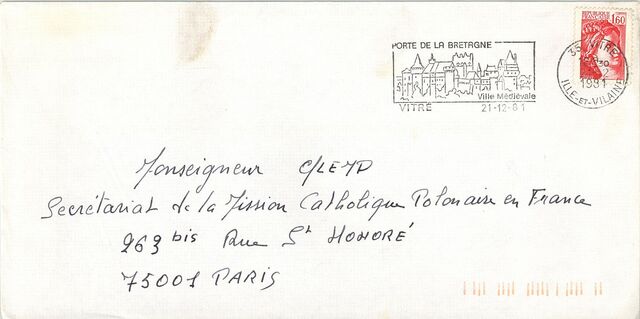 PORTE DE LA BRETAGNE
Ville Médiévale
VITRÉ 21-12-81
1,60
35 VITRE
1981
ILLE-ET-VILAINE
Monseigneur
Secrétariat de la Mission Catholique Polonaise en France
263 bis Rue St HONORÉ
75001 PARIS